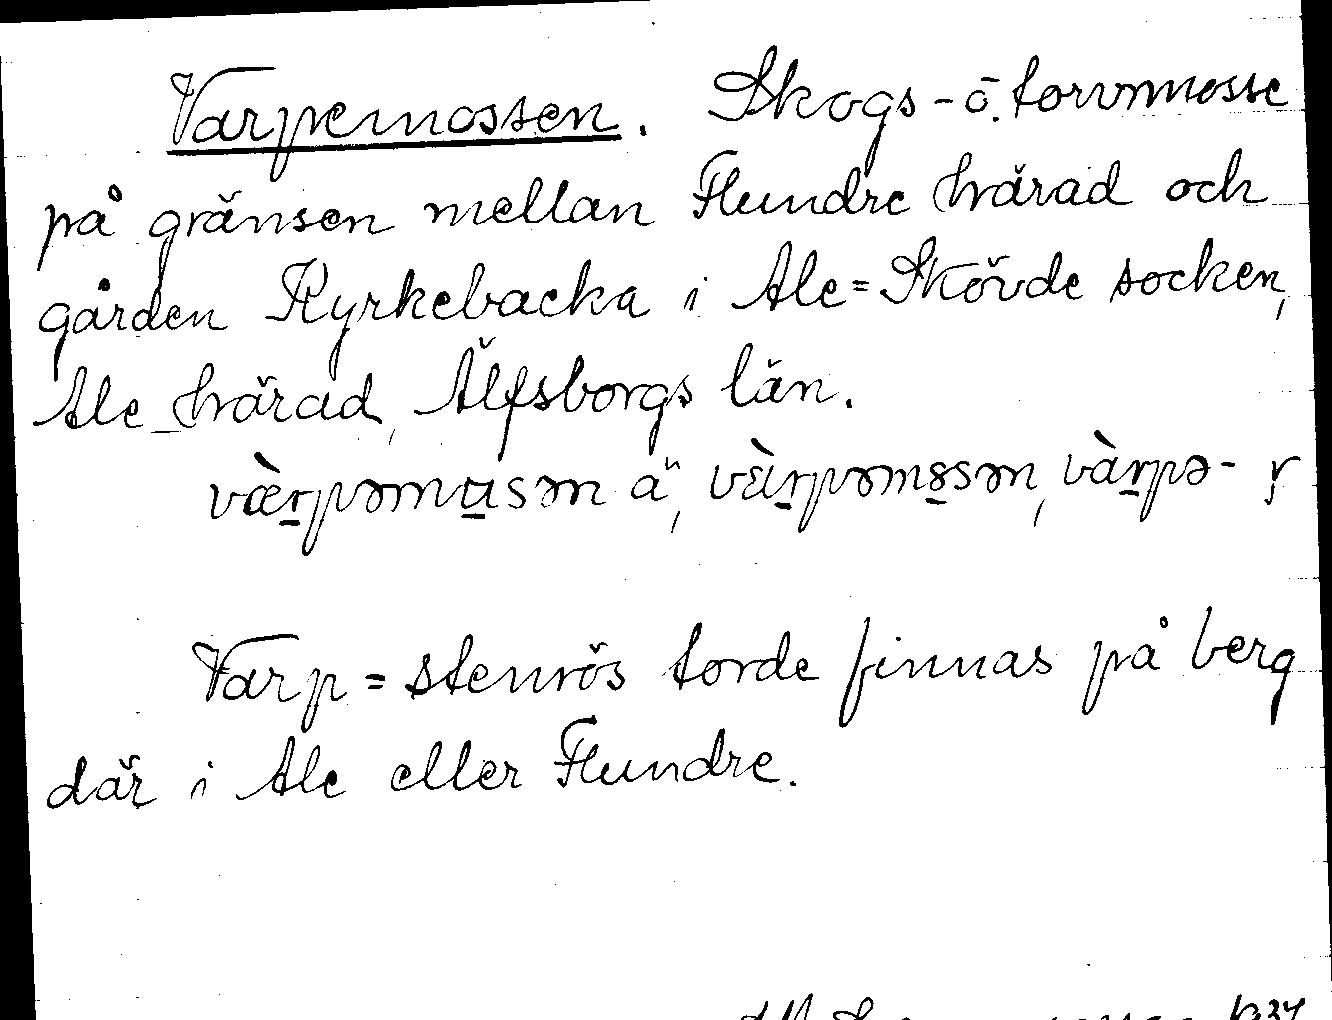 Varpemossen. Skogs- o. torvmosse
på gränsen mellan Flundre härad och
gården Kyrkebacka i Ale=Skövde socken,
Ale härad, Älfsborgs län.
Varp = stenrös torde finnas på berg
där i Ale eller Flundre.